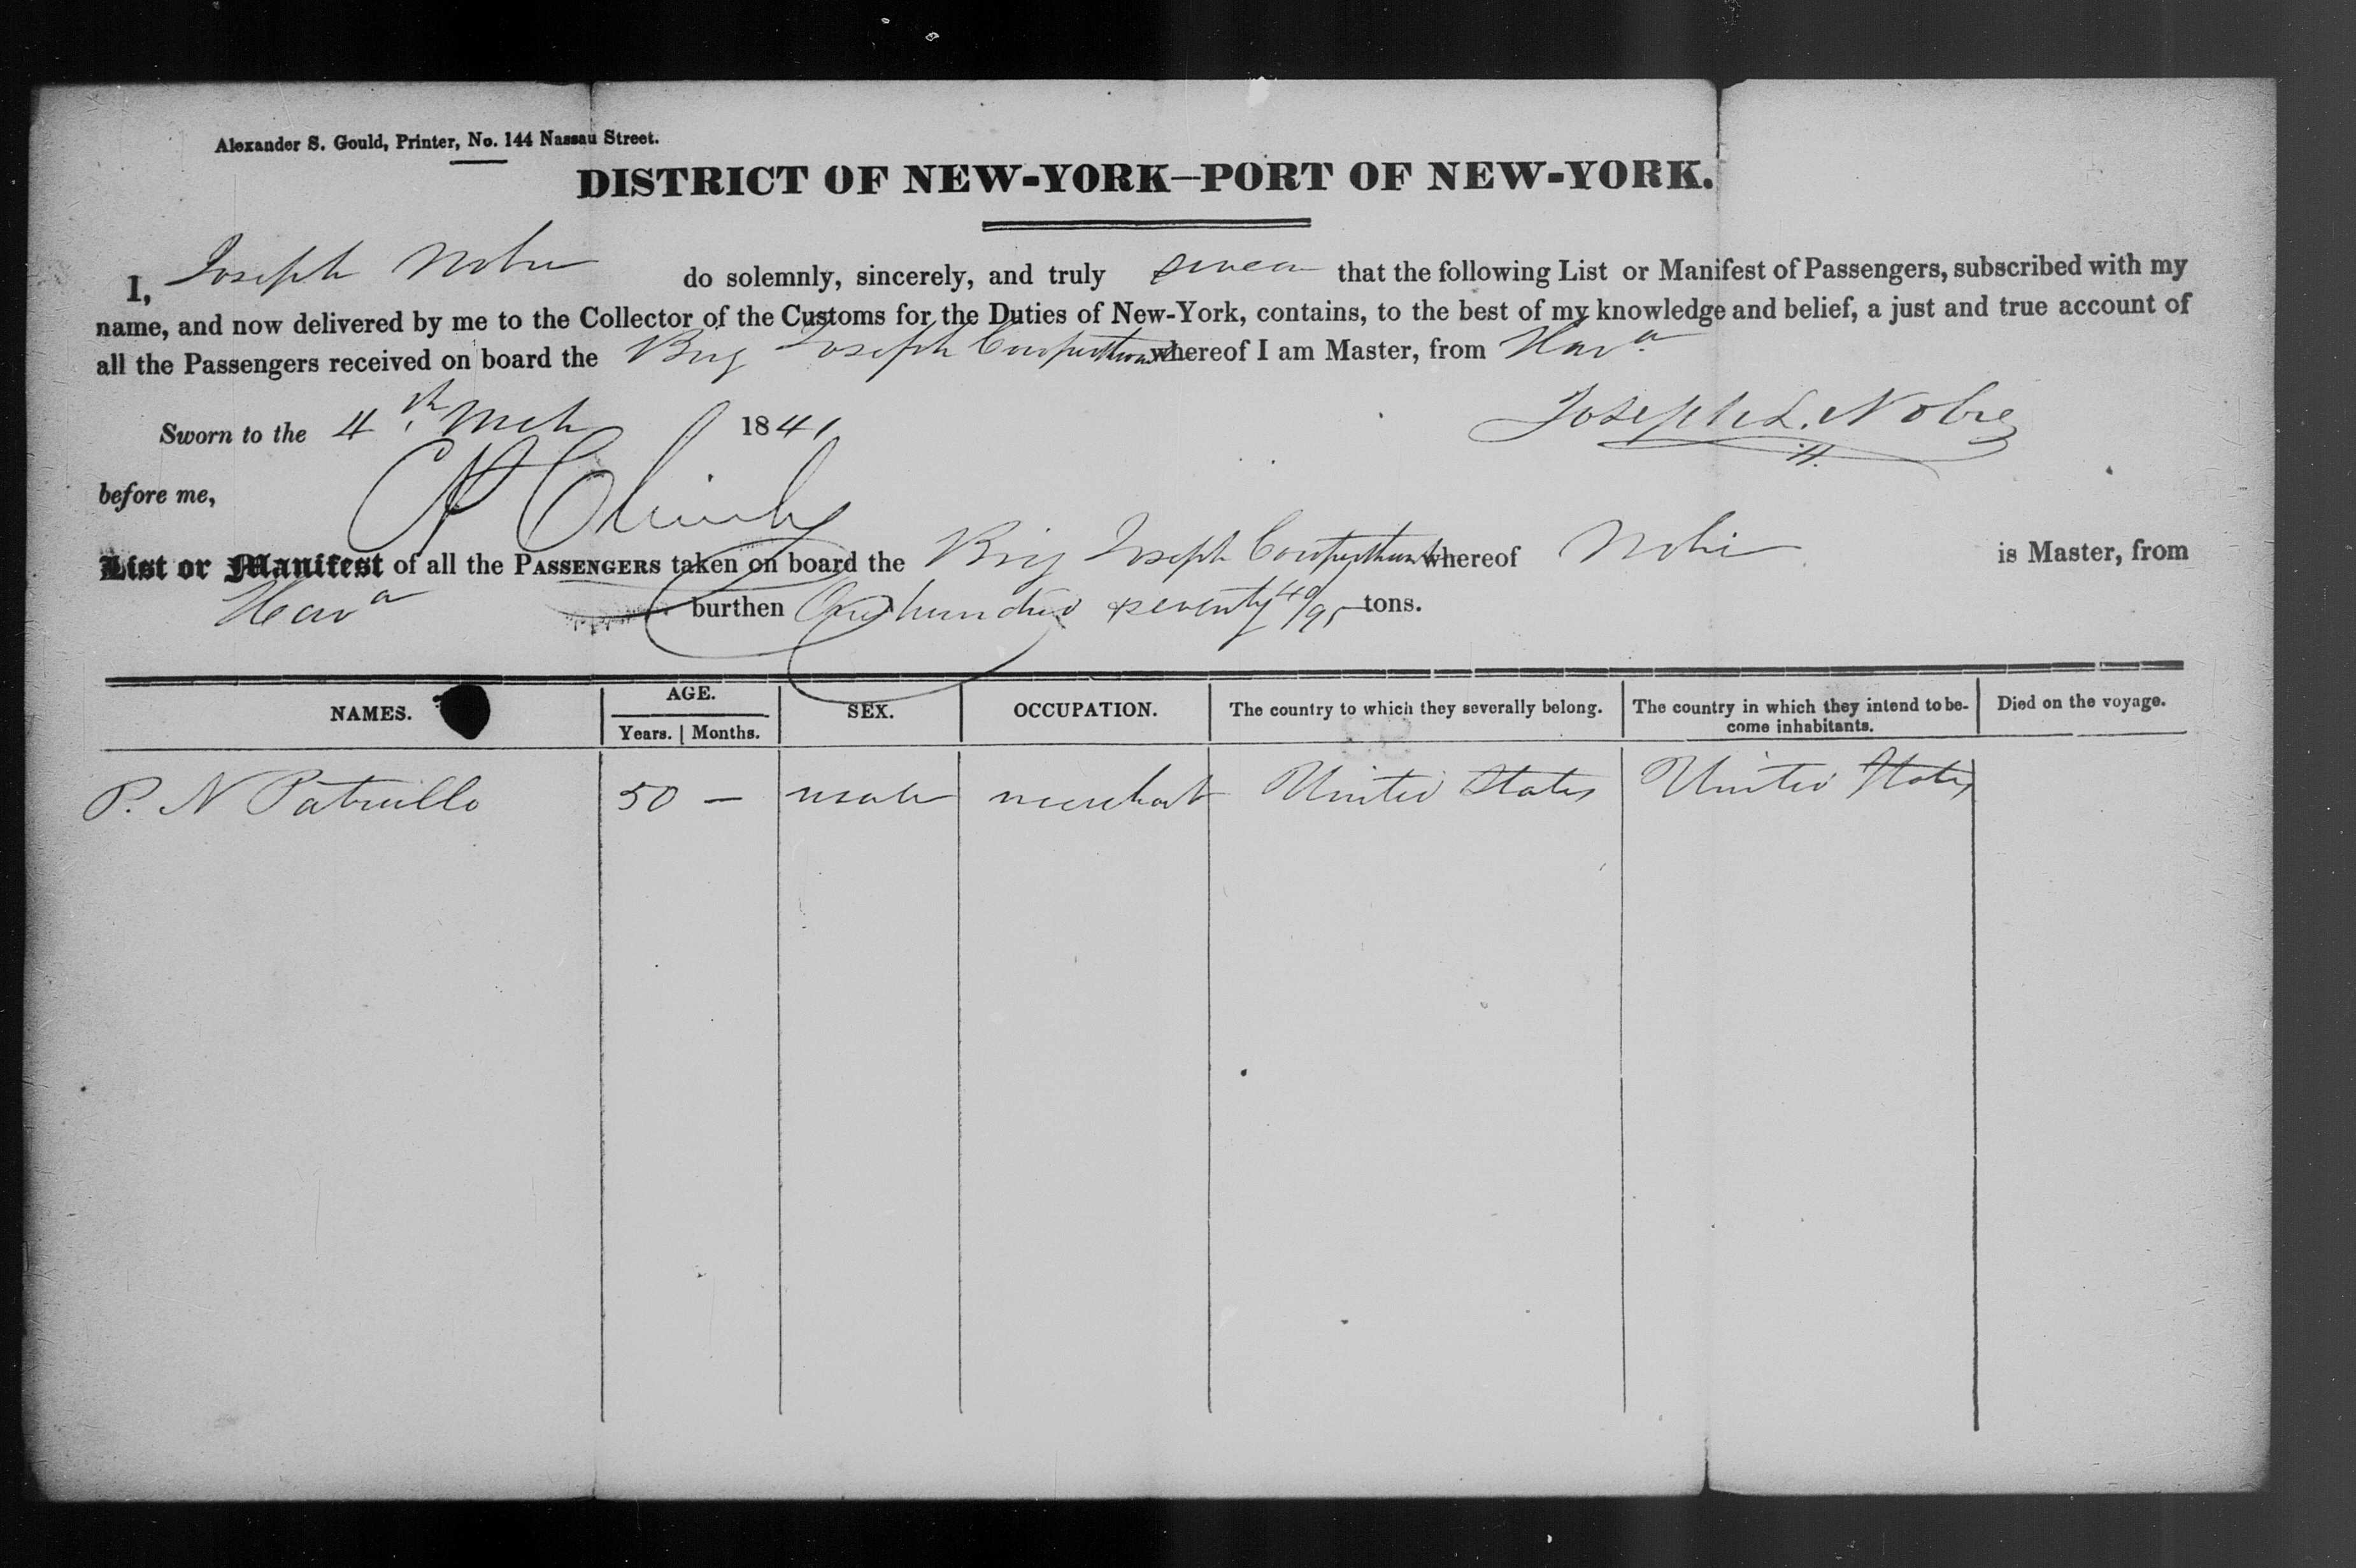 Alexander S. Gould, Printer, No. 144 Nassau Street.
DISTRICT OF NEW-YORK–PORT OF NEW-YORK.
I, Joseph do solemnly, sincerely, and truly swear that the following List or Manifest of Passengers, subscribed with my
name, and now delivered by me to the Collector of the Customs for the Duties of New-York, contains, to the best of my knowledge and belief, a just and true account of
all the Passengers received on board the Brig Joseph Cowperthwait whereof I am Master, from Hav a
Sworn to the 4th Mch 1841 Joseph L. Nobre
before me,
List or Manifest of all the PASSENGERS taken on board the Brig Joseph Cowperthwait whereof is Master, from
Hav a burthen One hundred & seventy 40/95 tons.
NAMES. AGE. SEX. OCCUPATION. The country to which they severally belong. The country in which they intend to be- Died on the voyage.
Years. Months. come inhabitants.
P. N Patrullo 50 — male merchant United States United States